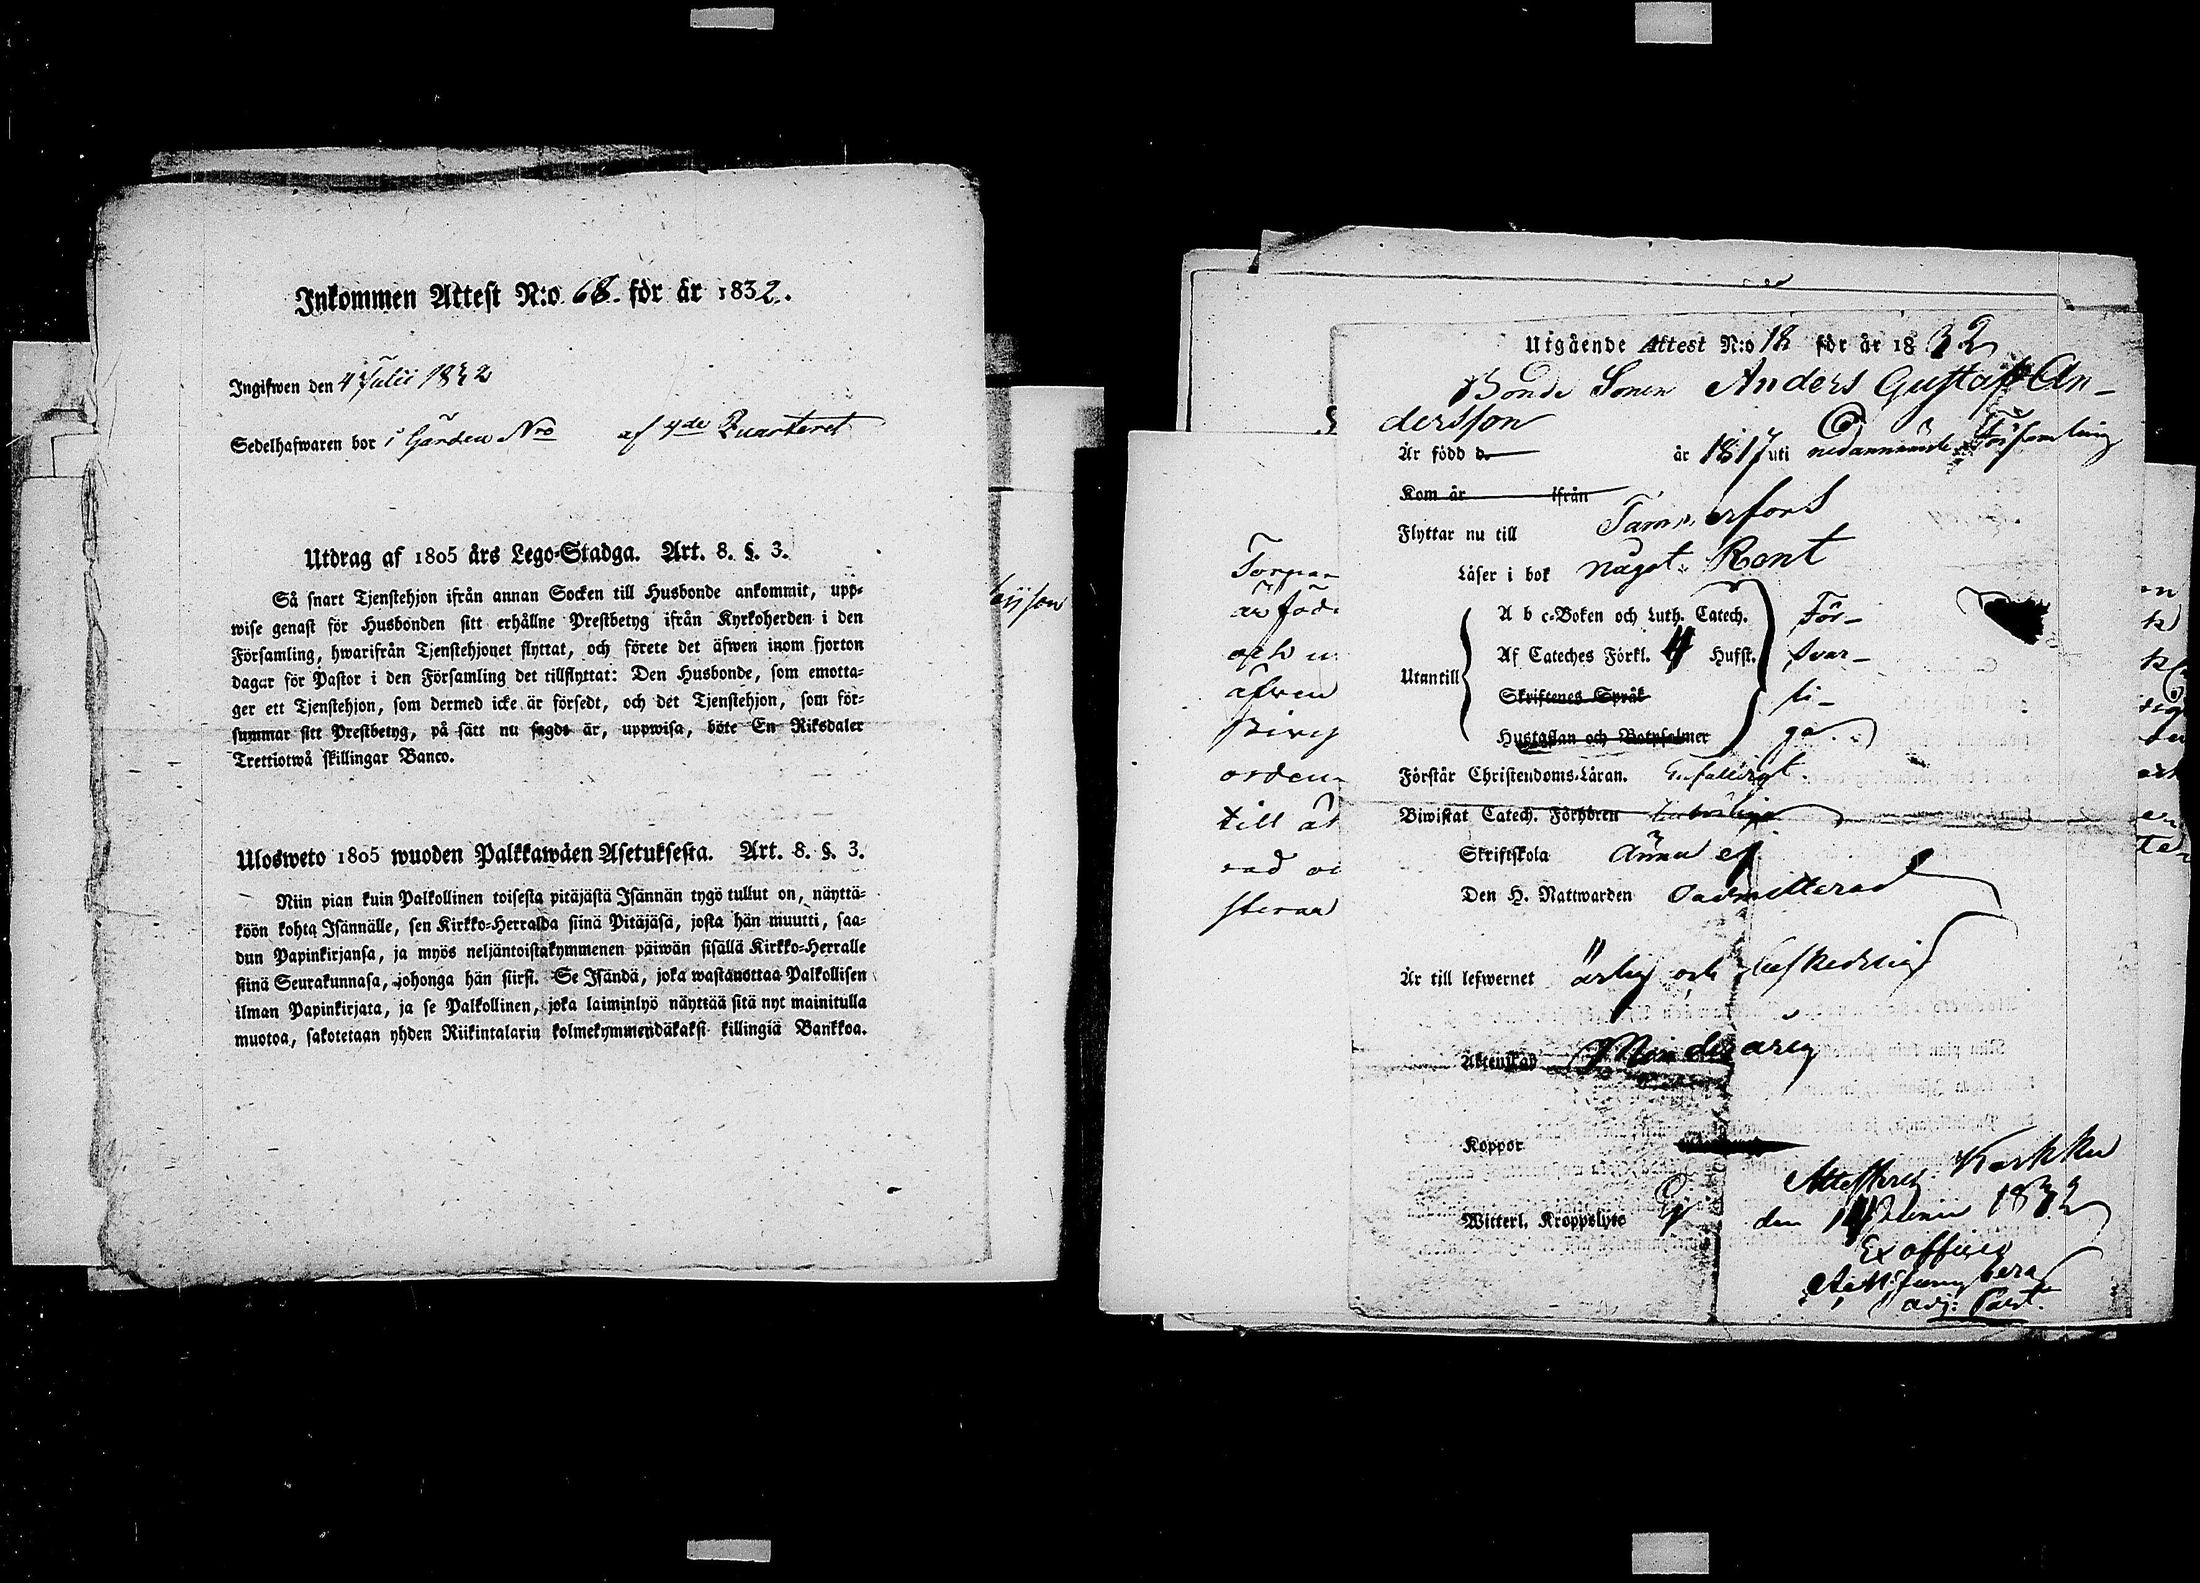 Inkommen Attest N:o 68. för år 1832.
Ingifwen den 4 Julii 1832
Sedelhafwaren bor i Gården Nro af 4de Quarteret
Utdrag af 1805 års Lego-Stadga. Art. 8. §. 3.
Så snart Tjenstehjon ifrån annan Socken till Husbonde ankommit, upp-
wise genast för Husbonden sitt erhållne Prestbetyg ifrån Kyrkoherden i den
Församling, hwarifrån Tjenstehjonet flyttat, och förete det äfwen inom fjorton
dagar för Pastor i den Församling det tillflyttat: Den Husbonde, som emotta-
ger ett Tjenstehjon, som dermed icke är försedt, och det Tjenstehjon, som för-
summar sitt Prestbetyg, på sätt nu sagdt är, uppwisa, böte En Riksdaler
Trettiotwå skillingar Banco.
Ulosweto 1805 wuoden Palkkawäen Asetuksesta. Art. 8. §. 3.
Niin pian kuin Palkollinen toisesta pitäjästä Isännän tygö tullut on, näyttä-
köön kohta Isännälle, sen Kirkko-Herralda siinä Pitäjäsä, josta hän muutti, saa-
dun Papinkirjansa, ja myös neljäntoistakymmenen päiwän sisällä Kirkko-Herralle
siinä Seurakunnasa, johonga hän siirst. Se Isändä, joka wastanottaa Palkollisen
ilman Papinkirjata, ja se Palkollinen, joka laiminlyö näyttää sitä nyt mainitulla
muotoa, sakotetaan yhden Riikintalarin kolmekymmendäkaksi killingiä Bankkoa.
Utgående Attest N:o 18 för år 1832
Bonde Sonen Anders Gustaf An-
dersson
Är född d. år 1817 uti nedannämde Församling
Kom år ifrån
Flyttar nu till Tammerfors
Läser i bok något Rent
A b c-Boken och Luth. Catech. För-
Af Cateches Förkl. 4 Hufst. svar-
Utantill
Skriftenes Språk li-
Hustaflan och Botpsalmer ga
Förstår Christendoms-Läran. Enfaldigt.
Biwistat Catech. Förhören
Skriftskola Ännu ej
Den H. Nattwarden Oadmitterad
Är till lefwernet ärlig och beskedlig
Äktenskap Minderårig
Koppor
Witterl. Kroppslyte Ej
Attesterar Karkku
den 14 Junii 1832
Ex officio
adj: Past.
Torpar
är föd
och u
äfven
orden
till at
rad oc